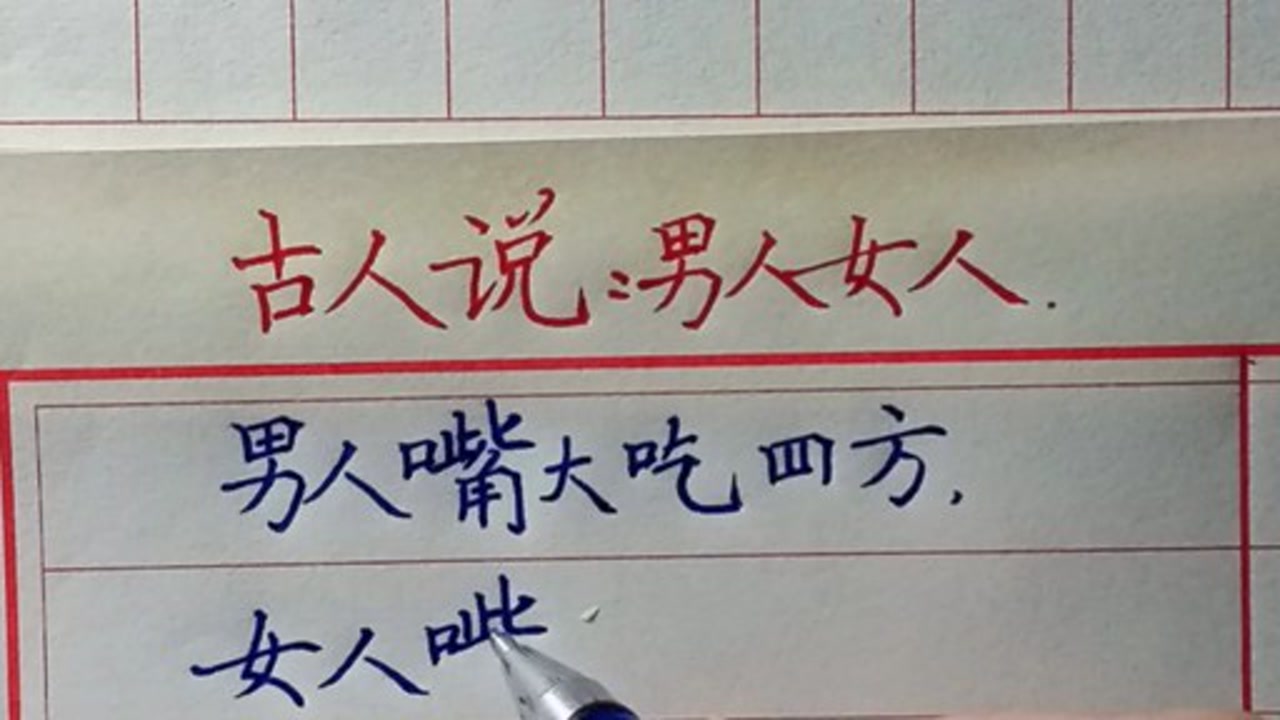 古人说:男人女人.
男人嘴大吃四方,
女人